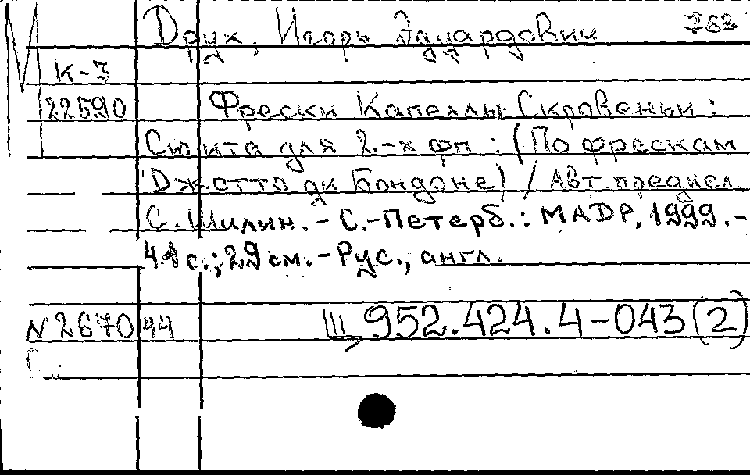 Друх, Игорь Эдуардович
М
К-3
22590 Фрески Капеллы Скровеньи :
Сюита для 2.-х фп : (По фрескам
Джотто ди Бондоне) / Авт. предисл.
С. Шилин. - С.-Петерб. : МАДР, 1999. -
41 с.; 29 см. - Рус., англ.
N 2670 44 Ш, 952.424.4-043 (2)